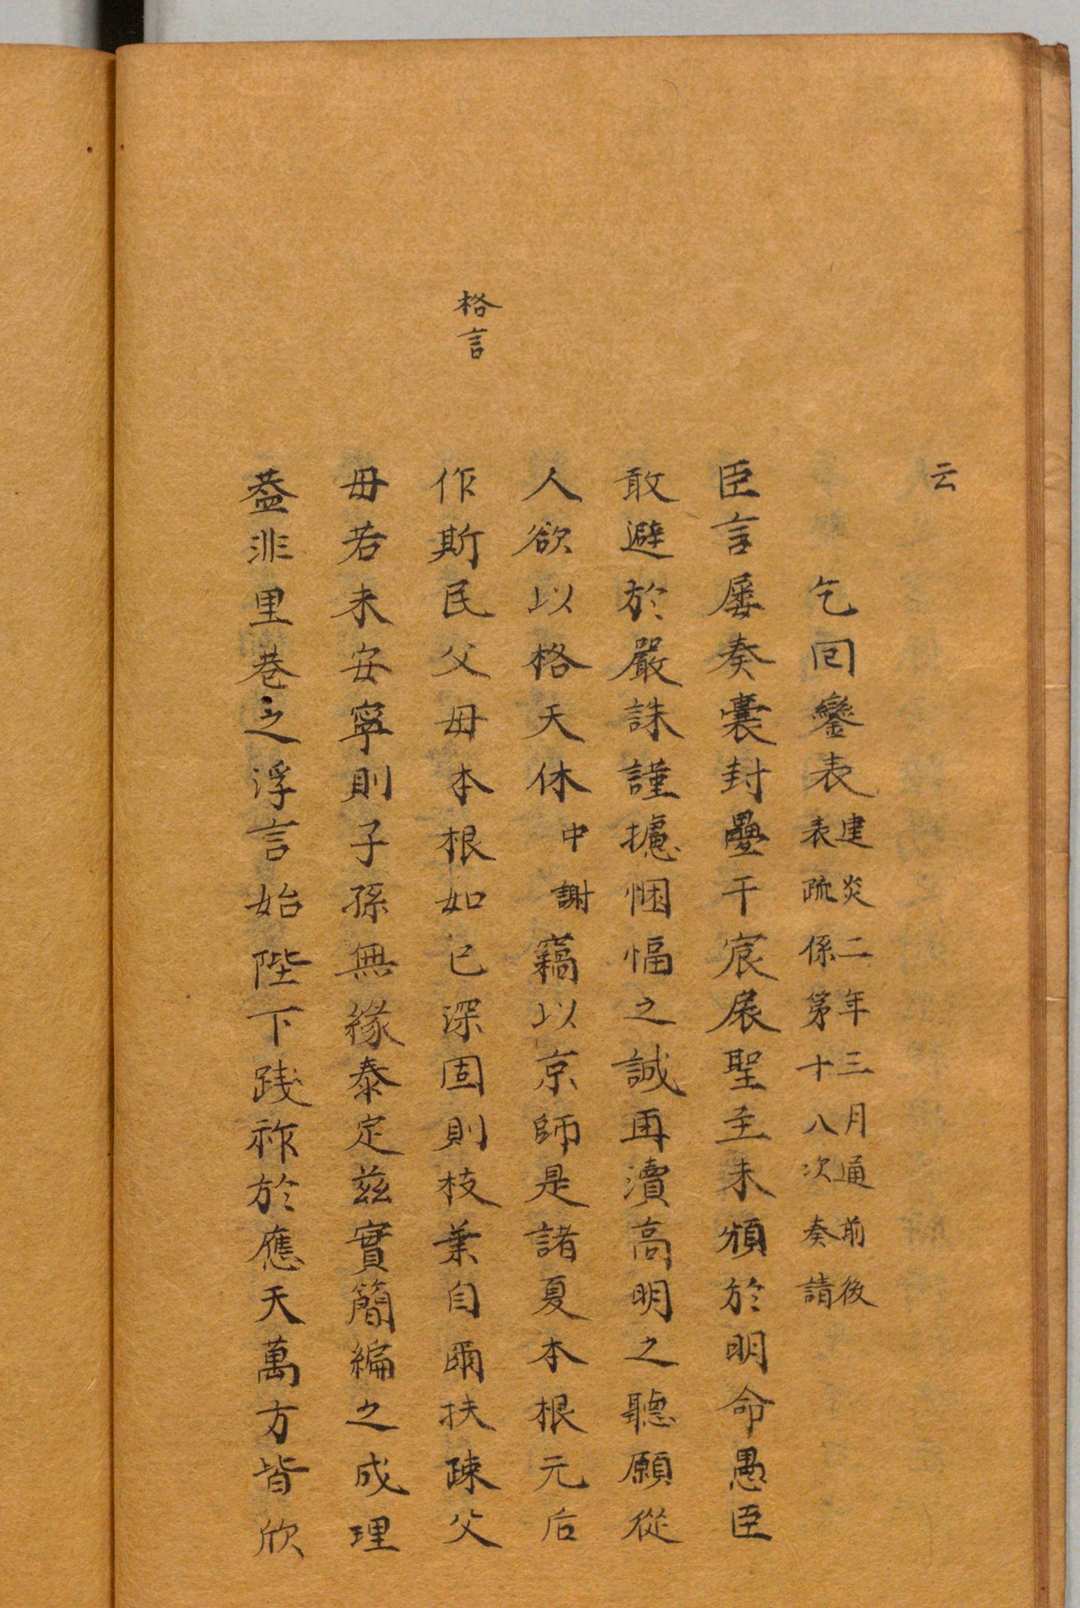 云
乞回鑾表
建炎二年三月通前後
表疏係第十八次奏請
臣言屢奏囊封疊干宸扆聖主未頒於明命愚臣
敢避於嚴誅謹攄悃愊之誠再瀆高明之聽願從
人欲以格天休中謝竊以京師是諸夏本根元后
作斯民父毋本根如已深固則枝葉自爾扶疎父
毋若未安寧則子孫無緣泰定茲實簡編之成理
葢非里巷之浮言始陛下踐祚於應天萬方皆欣
格言